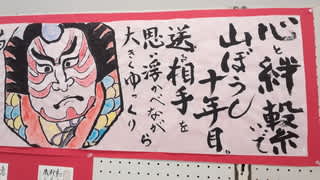 心と絆繋いで
山ぼうし十年目
送る相手を
思い浮かべながら
大きくゆっくり